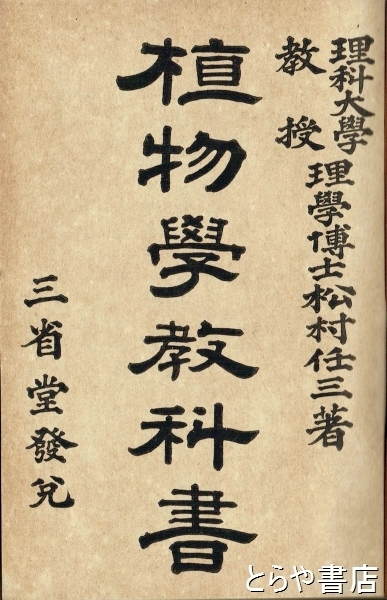 理科大學
教授
理學博士松村任三著
植物學教科書
三省堂發兌
とらや書店